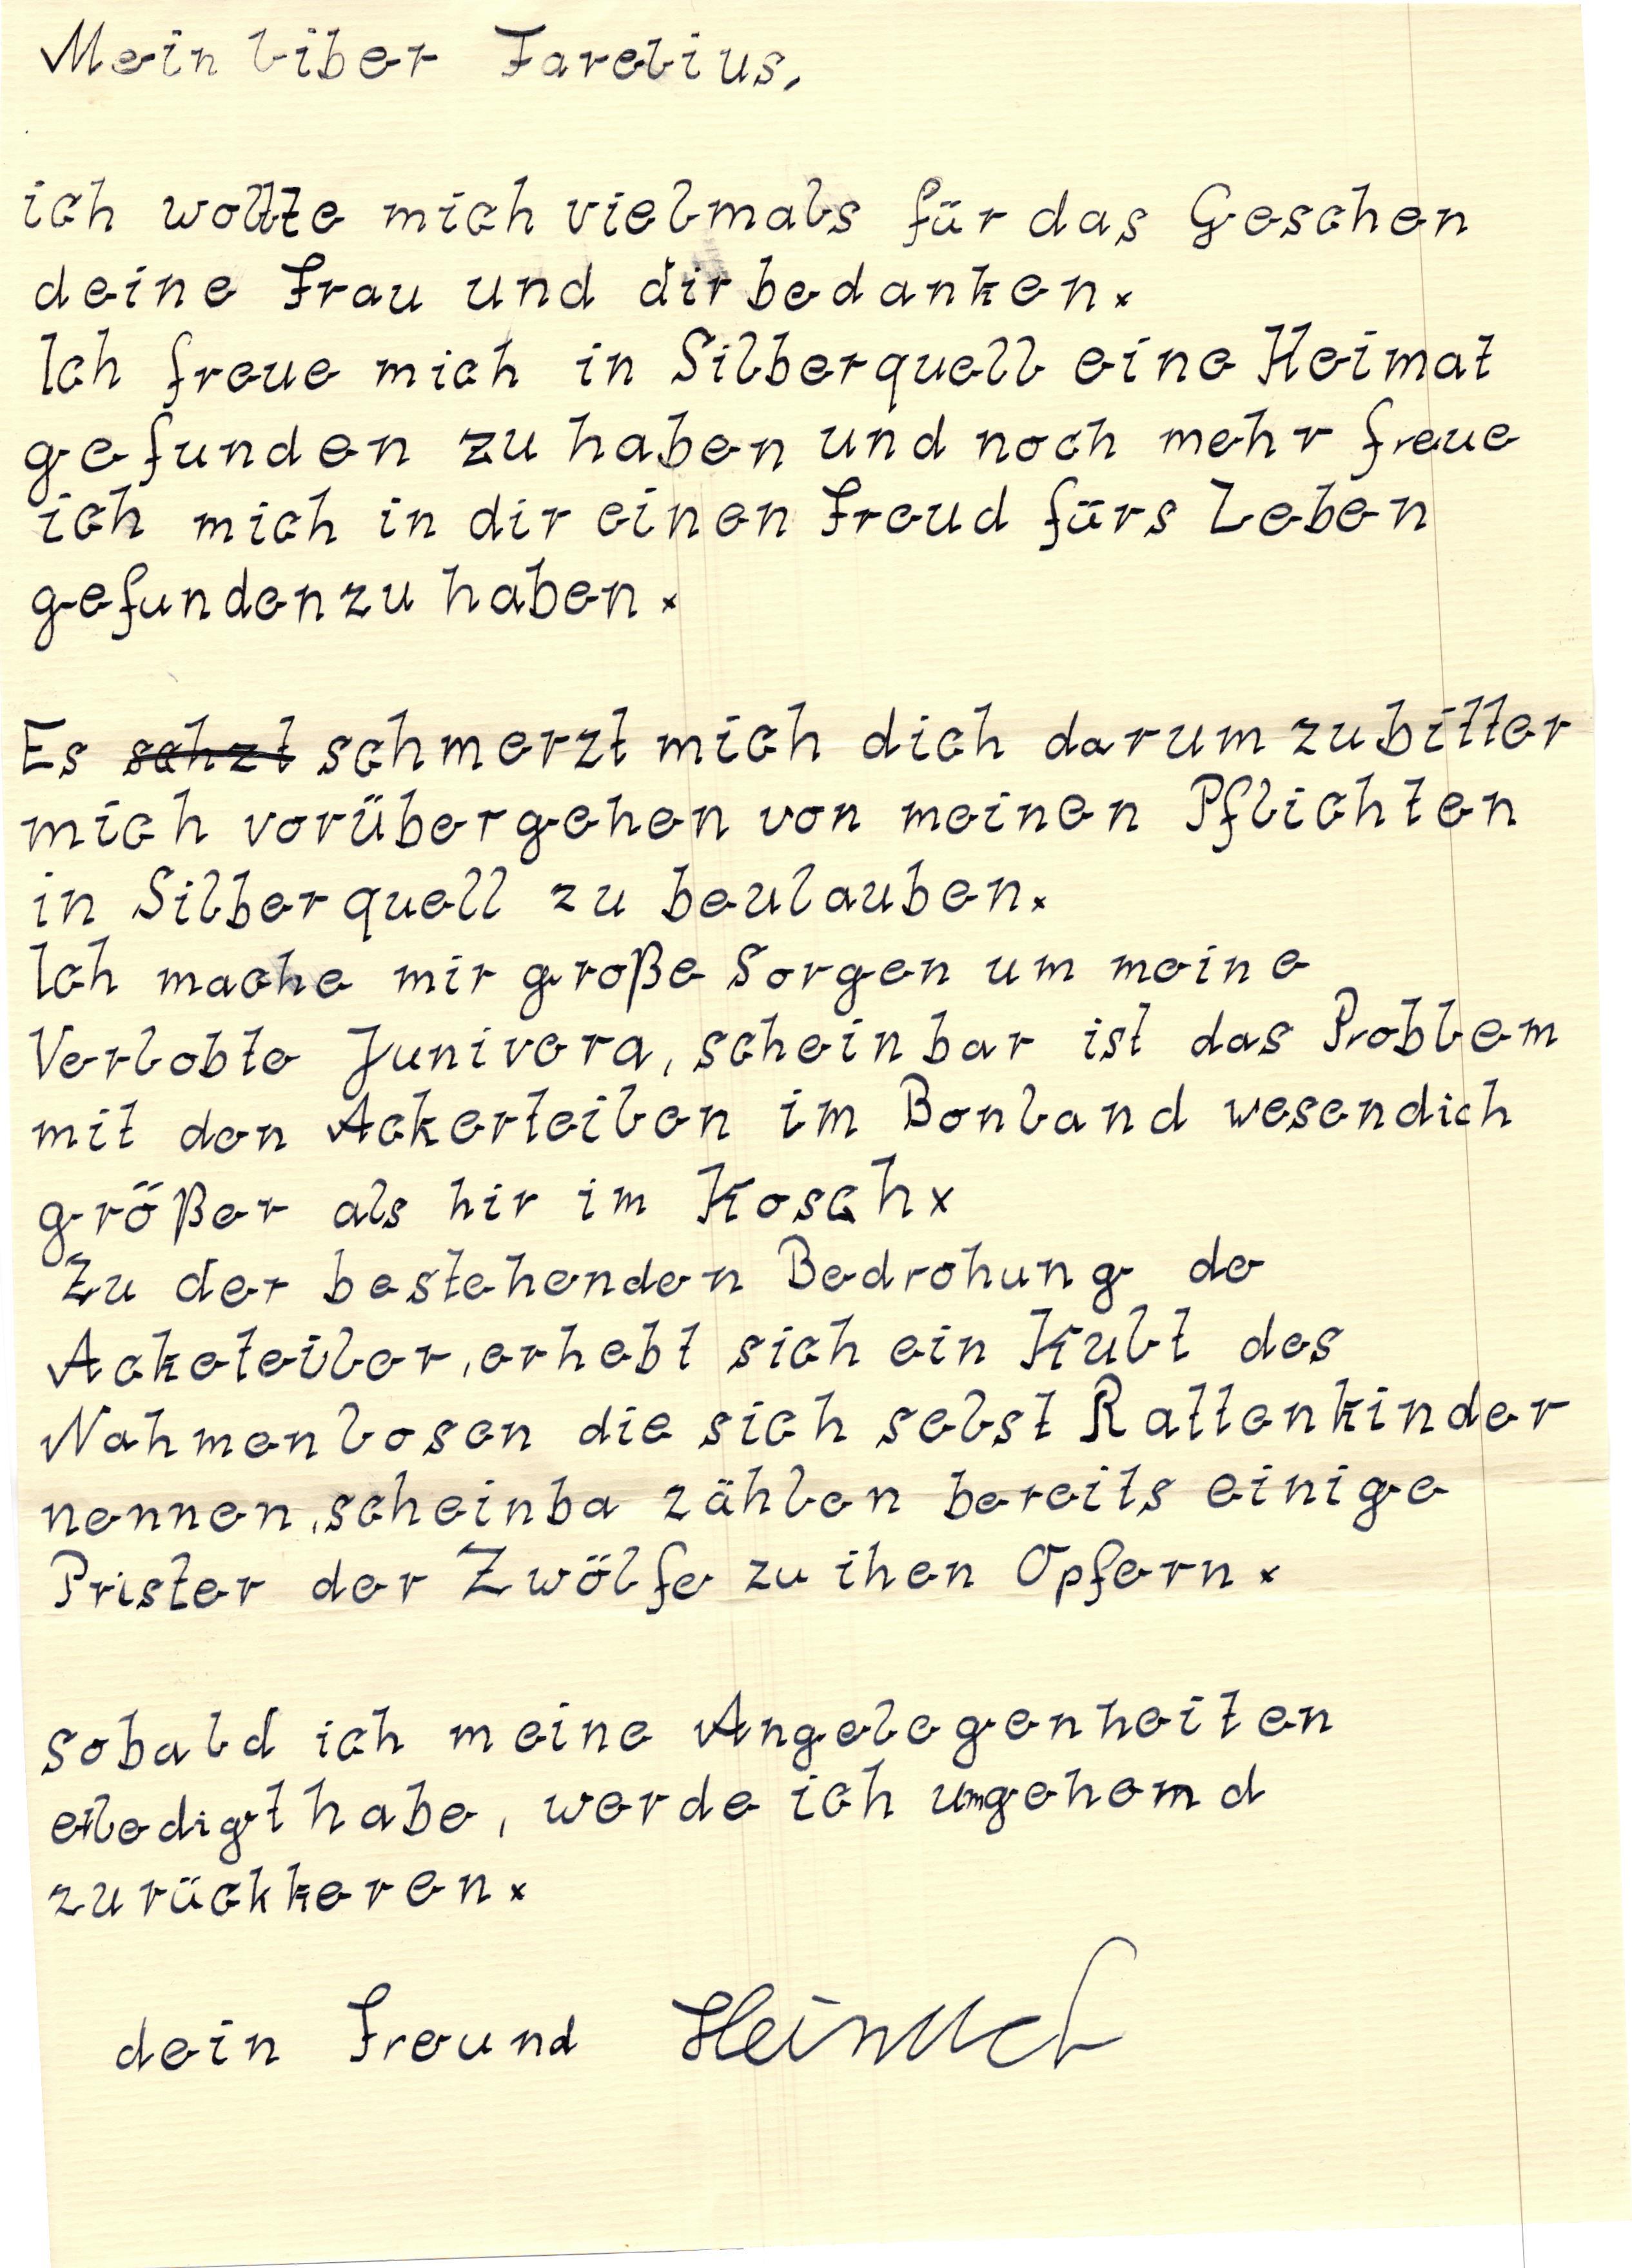 Mein liber Farelius,
ich wollte mich vielmals für das Geschen
deine Frau und dir bedanken.
Ich freue mich in Silberquell eine Heimat
gefunden zu haben und noch mehr freue
ich mich in dir einen Freud fürs Leben
gefunden zu haben.
Es schzt schmerzt mich dich darum zu bitter
mich vorübergehen von meinen Pflichten
in Silberquell zu beulauben.
Ich mache mir große Sorgen um meine
Verlobte Junivera, scheinbar ist das Problem
mit den Ackerteilen im Bonland wesendich
größer als hir im Kosch.
Zu der bestehenden Bedrohung de
Acketeiler, erhebt sich ein Kult des
Nahmenlosen die sich selbst Rattenkinder
nennen, scheinba zählen bereits einige
Prister der Zwölfe zu ihen Opfern.
Sobald ich meine Angelegenheiten
erledigt habe, werde ich umgehemd
zurückkeren.
dein Freund